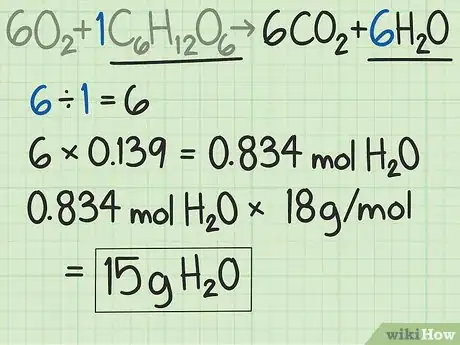 6O₂+1C₆H₁₂O₆→6CO₂+6H₂O
6÷1=6
6×0.139=0.834 mol H₂O
0.834 mol H₂O × 18g/mol
= 15g H₂O
wikiHow